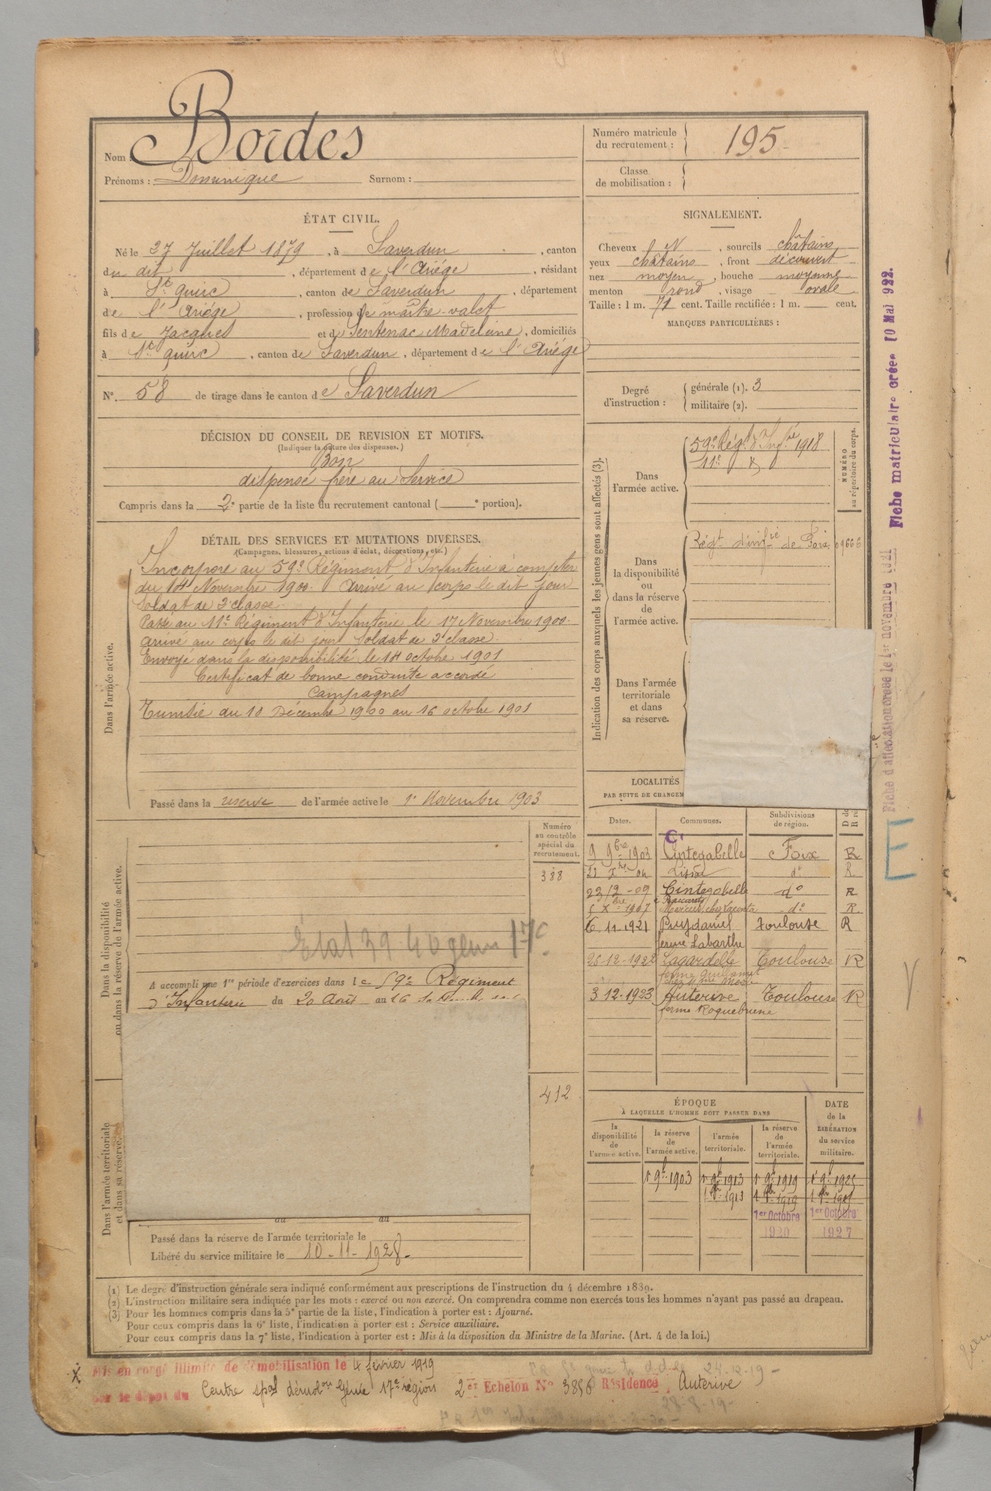 Nom : Bordes
Prénoms : Dominique Surnom :
Numéro matricule du recrutement : 195
Classe de mobilisation :
ÉTAT CIVIL.
Né le 27 Juillet 1879, à Saverdun, canton
du dit, département de l'Ariége, résidant
à St Quirc, canton de Saverdun, département
de l'Ariége, profession de maître-valet
fils de Jacques et de Sentenac Madeleine, domiciliés
à St Quirc, canton de Saverdun, département de l'Ariége
N° 58 de tirage dans le canton de Saverdun
SIGNALEMENT.
Cheveux N, sourcils châtains
yeux châtains, front découvert
nez moyen, bouche moyenne
menton rond, visage ovale
Taille : 1 m. 71 cent. Taille rectifiée : 1 m. cent.
MARQUES PARTICULIÈRES :
Degré d'instruction :
générale (1). 3
militaire (2).
DÉCISION DU CONSEIL DE REVISION ET MOTIFS.
(Indiquer la nature des dispenses.)
Bon
dispensé frère au Service
Compris dans la 2e partie de la liste du recrutement cantonal ( e portion).
DÉTAIL DES SERVICES ET MUTATIONS DIVERSES.
(Campagnes, blessures, actions d'éclat, décorations, etc.)
Dans l'armée active.
Incorporé au 59e Régiment d'Infanterie à compter
du 14 Novembre 1900. Arrivé au corps le dit jour
Soldat de 2e classe.
Passé au 11e Régiment d'Infanterie le 17 Novembre 1900.
Arrivé au corps le dit jour Soldat de 2e classe.
Envoyé dans la disponibilité le 18 octobre 1901
Certificat de bonne conduite accordé
Campagnes
Tunisie du 10 Décembre 1900 au 16 octobre 1901
Passé dans la réserve de l'armée active le 1er Novembre 1903
Indication des corps auxquels les jeunes gens sont affectés (3).
Dans l'armée active.
59e Régt d'Infrie 1918
11e
NUMÉRO au répertoire du corps.
Dans la disponibilité ou dans la réserve de l'armée active.
Régt d'Infie de Foix
Dans l'armée territoriale et dans sa réserve.
LOCALITÉS
PAR SUITE DE CHANGEM
Dates. Communes. Subdivisions de région.
9 9bre 1903 Cintegabelle Foix R
Lissac do R
23/2-09 Cintegabelle do R
do R
6.11-1921 Puydaniel Toulouse R
ferme Labarthe
25-12-1922 Lagardelle Toulouse R
3-12-1923 Auterive Toulouse R
ferme Roquebrune
Numéro au contrôle spécial du recrutement.
388
412
Dans la disponibilité ou dans la réserve de l'armée active.
Etat 39-40 génie 17e
A accompli une 1re période d'exercices dans le 59e Régiment
d'Infanterie du 20 Août au 16
Dans l'armée territoriale et dans sa réserve.
du au
Passé dans la réserve de l'armée territoriale le
Libéré du service militaire le 10-11-1928.
ÉPOQUE
À LAQUELLE L'HOMME DOIT PASSER DANS
la disponibilité de l'armée active.
la réserve de l'armée active.
l'armée territoriale.
la réserve de l'armée territoriale.
DATE de la LIBÉRATION du service militaire.
1er 9bre 1903 1er 9bre 1913 1er 9bre 1919 1er 9bre 1925
1er Octobre 1920
1er Octobre 1927
(1) Le degré d'instruction générale sera indiqué conformément aux prescriptions de l'instruction du 4 décembre 1889.
(2) L'instruction militaire sera indiquée par les mots : exercé ou non exercé. On comprendra comme non exercés tous les hommes n'ayant pas passé au drapeau.
(3) Pour les hommes compris dans la 5e partie de la liste, l'indication à porter est : Ajourné.
Pour ceux compris dans la 6e liste, l'indication à porter est : Service auxiliaire.
Pour ceux compris dans la 7e liste, l'indication à porter est : Mis à la disposition du Ministre de la Marine. (Art. 4 de la loi.)
Mis en congé illimité de démobilisation le 4 février 1919
par le dépôt du Centre spal démolon Génie 17e région 2e Echelon No 3856 Résidence Auterive
24-12-19
28-8-19
Fiche matriculaire créée 10 Mai 922.
Fiche d'affectation créée le 1er novembre 1921
E